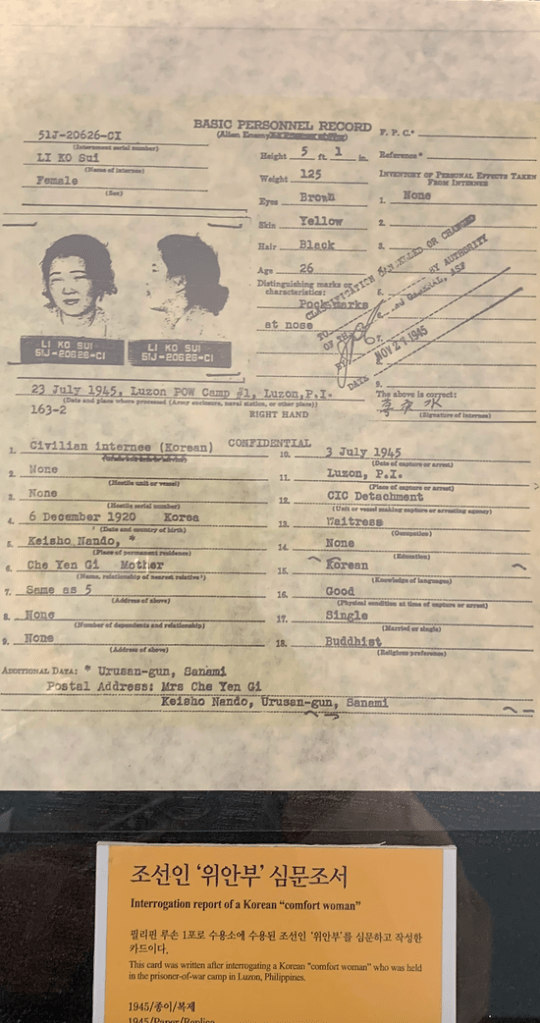 BASIC PERSONNEL RECORD
(Alien Enemy
51J-20626-CI
(Internment serial number)
LI KO Sui
(Name of internee)
Female
(Sex)
Height 5 ft. 1 in.
Weight 125
Eyes Brown
Skin Yellow
Hair Black
Age 26
Distinguishing marks or characteristics:
Pockmarks
at nose
F. P. C.*
Reference*
INVENTORY OF PERSONAL EFFECTS TAKEN
FROM INTERNEE
1. None
2.
3.
5.
6.
7.
9.
CLASSIFICATION CANCELLED OR CHANGED
TO
BY AUTHORITY
OF THE
GENERAL, ASF
BY
DATE NOV 21 1945
The above is correct:
(Signature of internee)
LI KO SUI
51J-20626-CI
LI KO SUI
51J-20626-CI
23 July 1945, Luzon POW Camp #1, Luzon, P.I.
(Date and place where processed (Army enclosure, naval station, or other place))
163-2
RIGHT HAND
CONFIDENTIAL
1. Civilian internee (Korean)
2. None
(Hostile unit or vessel)
3. None
(Hostile serial number)
4. 6 December 1920 Korea
(Date and country of birth)
5. Keisho Nando, *
(Place of permanent residence)
6. Che Yen Gi Mother
(Name, relationship of nearest relative)
7. Same as 5
(Address of above)
8. None
(Number of dependents and relationship)
9. None
(Address of above)
10. 3 July 1945
(Date of capture or arrest)
11. Luzon, P.I.
(Place of capture or arrest)
12. CIC Detachment
(Unit or vessel making capture or arresting agency)
13. Waitress
(Occupation)
14. None
(Education)
15. Korean
(Knowledge of languages)
16. Good
(Physical condition at time of capture or arrest)
17. Single
(Married or single)
18. Buddhist
(Religious preference)
ADDITIONAL DATA: * Urusan-gun, Sanami
Postal Address: Mrs Che Yen Gi
Keisho Nando, Urusan-gun, Sanami
조선인 ‘위안부’ 심문조서
Interrogation report of a Korean “comfort woman”
필리핀 루손 1포로 수용소에 수용된 조선인 ‘위안부’를 심문하고 작성한
카드이다.
This card was written after interrogating a Korean "comfort woman" who was held
in the prisoner-of-war camp in Luzon, Philippines.
1945/종이/복제
1945/Paper/Replica